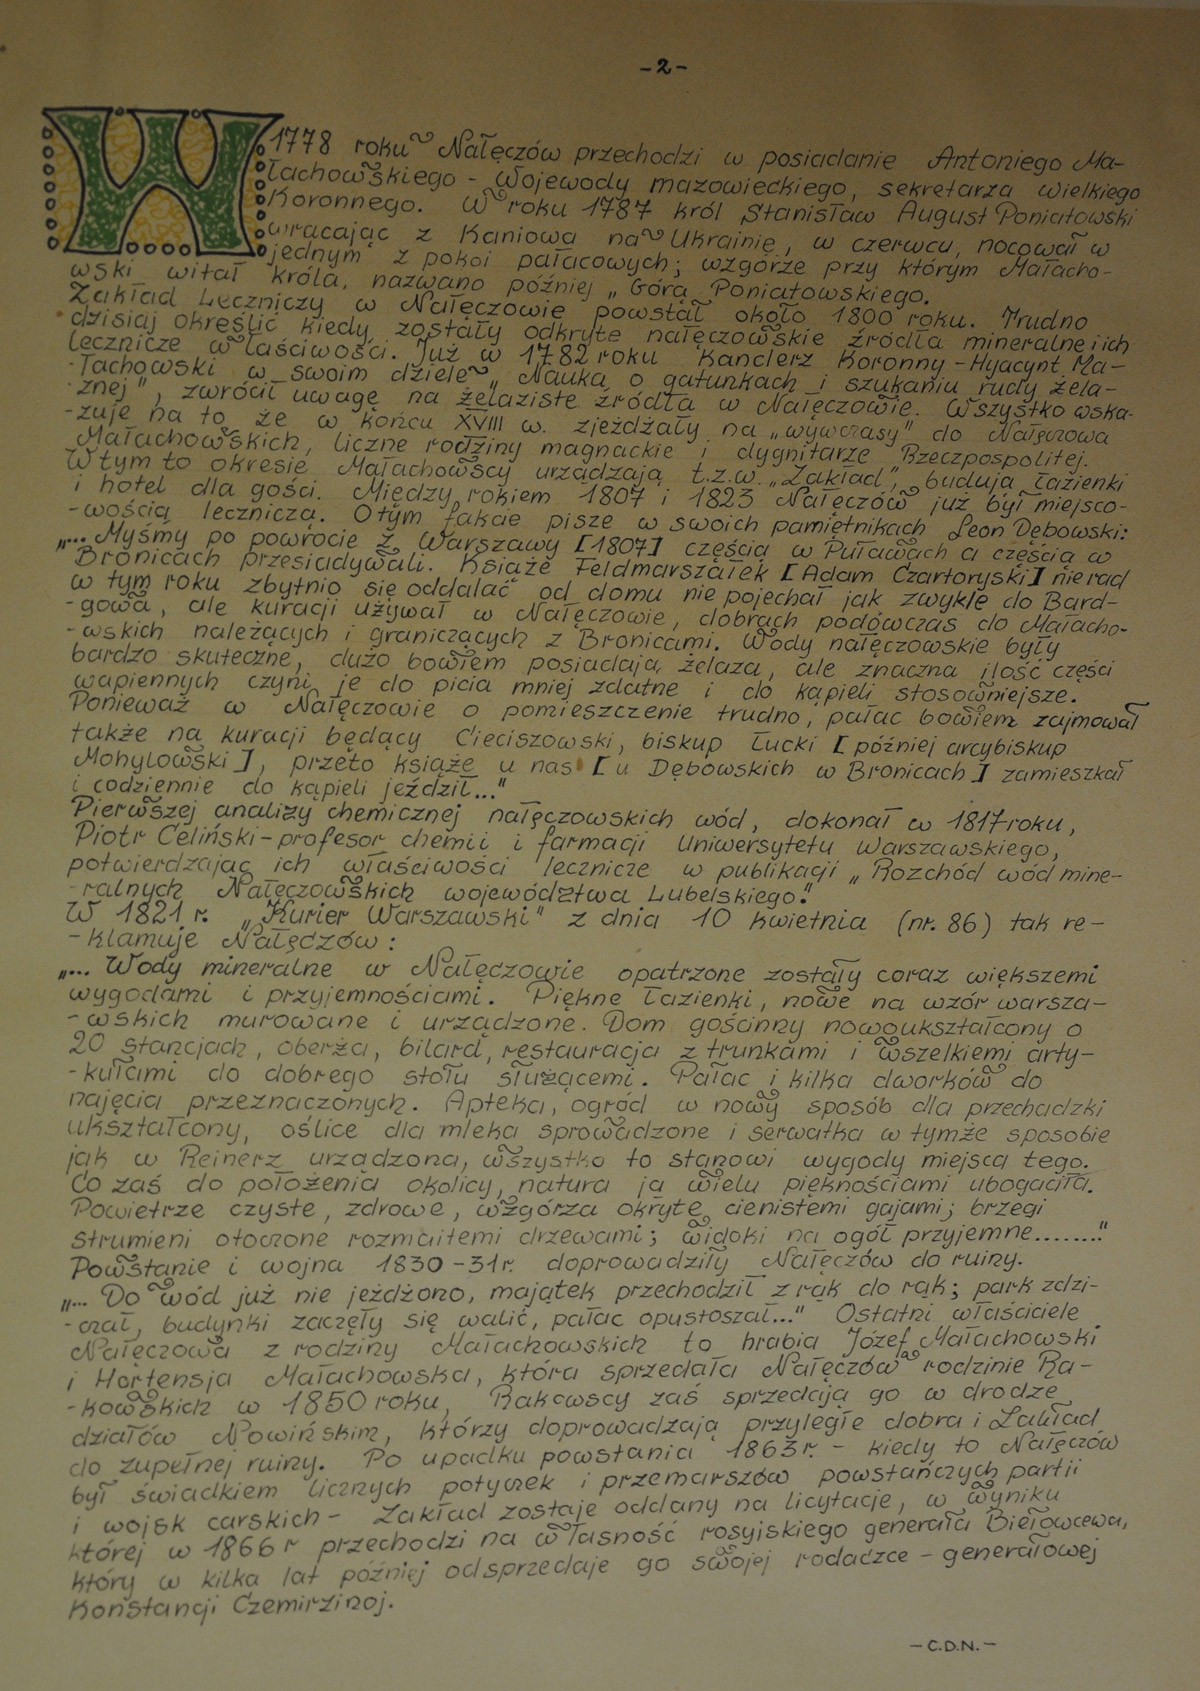 -2-
W 1778 roku Nałęczów przechodzi w posiadanie Antoniego Ma-
łachowskiego - wojewody mazowieckiego, sekretarza wielkiego
Koronnego. W roku 1787 król Stanisław August Poniatowski
wracając z Kaniowa na Ukrainie, w czerwcu, nocował w
jednym z pokoi pałacowych; wzgórze przy którym Małacho-
wski witał króla, nazwano później „Górą Poniatowskiego.
Zakład Leczniczy w Nałęczowie powstał około 1800 roku. Trudno
dzisiaj określić kiedy zostały odkryte nałęczowskie źródła mineralne i ich
lecznicze właściwości. Już w 1782 roku Kanclerz Koronny - Hyacynt Ma-
-łachowski w swoim dziele „Nauka o gatunkach i szukaniu rudy żela-
-znej", zwrócił uwagę na żelaziste źródła w Nałęczowie. Wszystko wska-
-zuje na to, że w końcu XVIII w. zjeżdżały na „wywczasy" do Nałęczowa
Małachowskich, liczne rodziny magnackie i dygnitarze Rzeczpospolitej.
W tym to okresie Małachowscy urządzają t.z.w. „Zakład", budują łazienki
i hotel dla gości. Między rokiem 1807 i 1823 Nałęczów już był miejsco-
-wością leczniczą. O tym fakcie pisze w swoich pamiętnikach Leon Dębowski:
„... Myśmy po powrocie z Warszawy [1807] częścią w Puławach a częścią w
Bronicach przesiadywali. Książe Feldmarszałek [Adam Czartoryski] nie rad
w tym roku zbytnio się oddalać od domu nie pojechał jak zwykle do Bard-
-gowa, ale kuracji używał w Nałęczowie, dobrach podówczas do Małacho-
-wskich należących i graniczących z Bronicami. Wody nałęczowskie były
bardzo skuteczne, dużo bowiem posiadają żelaza, ale znaczna ilość części
wapiennych czyni je do picia mniej zdatne i do kąpieli stosowniejsze.
Ponieważ w Nałęczowie o pomieszczenie trudno, pałac bowiem zajmował
także na kuracji będący Cieciszowski, biskup Łucki [później arcybiskup
Mohylowski], przeto książę u nas [u Dębowskich w Bronicach] zamieszkał
i codziennie do kąpieli jeździł..."
Pierwszej analizy chemicznej nałęczowskich wód, dokonał w 1817 roku,
Piotr Celiński - profesor chemii i farmacji Uniwersytetu Warszawskiego,
potwierdzając ich właściwości lecznicze w publikacji „Rozchód wód mine-
-ralnych Nałęczowskich województwa Lubelskiego."
W 1821 r. „Kurier Warszawski" z dnia 10 kwietnia (nr. 86) tak re-
-klamuje Nałęczów:
„... Wody mineralne w Nałęczowie opatrzone zostały coraz większemi
wygodami i przyjemnościami. Piękne łazienki, nowe na wzór warsza-
-wskich murowane i urządzone. Dom gościnny nowoukształcony o
20 stancjach, oberża, bilard, restauracja z trunkami i wszelkiemi arty-
-kułami do dobrego stołu służącemi. Pałac i kilka dworków do
najęcia przeznaczonych. Apteka, ogród w nowy sposób dla przechadzki
ukształcony, oślice dla mleka sprowadzone i serwatka w tymże sposobie
jak w Reinerz urządzona, wszystko to stanowi wygody miejsca tego.
Co zaś do położenia okolicy, natura ją wielu pięknościami ubogaciła.
Powietrze czyste, zdrowe, wzgórza okryte cienistemi gajami; brzegi
strumieni otoczone rozmaitemi drzewami; widoki na ogół przyjemne........"
Powstanie i wojna 1830-31 r. doprowadziły Nałęczów do ruiny.
„... Do wód już nie jeżdżono, majątek przechodził z rąk do rąk; park zdzi-
-czał, budynki zaczęły się walić, pałac opustoszał..." Ostatni właściciele
Nałęczowa z rodziny Małachowskich to hrabia Józef Małachowski
i Hortensja Małachowska, która sprzedała Nałęczów rodzinie Ra-
-kowskich w 1850 roku, Rakowscy zaś sprzedają go w drodze
działów Nowińskim, którzy doprowadzają przyległe dobra i Zakład
do zupełnej ruiny. Po upadku powstania 1863 r. - kiedy to Nałęczów
był świadkiem licznych potyczek i przemarszów powstańczych partii
i wojsk carskich - Zakład zostaje oddany na licytacje, w wyniku
której w 1866 r przechodzi na własność rosyjskiego generała Biełowcewa,
który w kilka lat później odsprzedaje go swojej rodaczce - generałowej
Konstancji Czemirzinoj.
-C.D.N.-